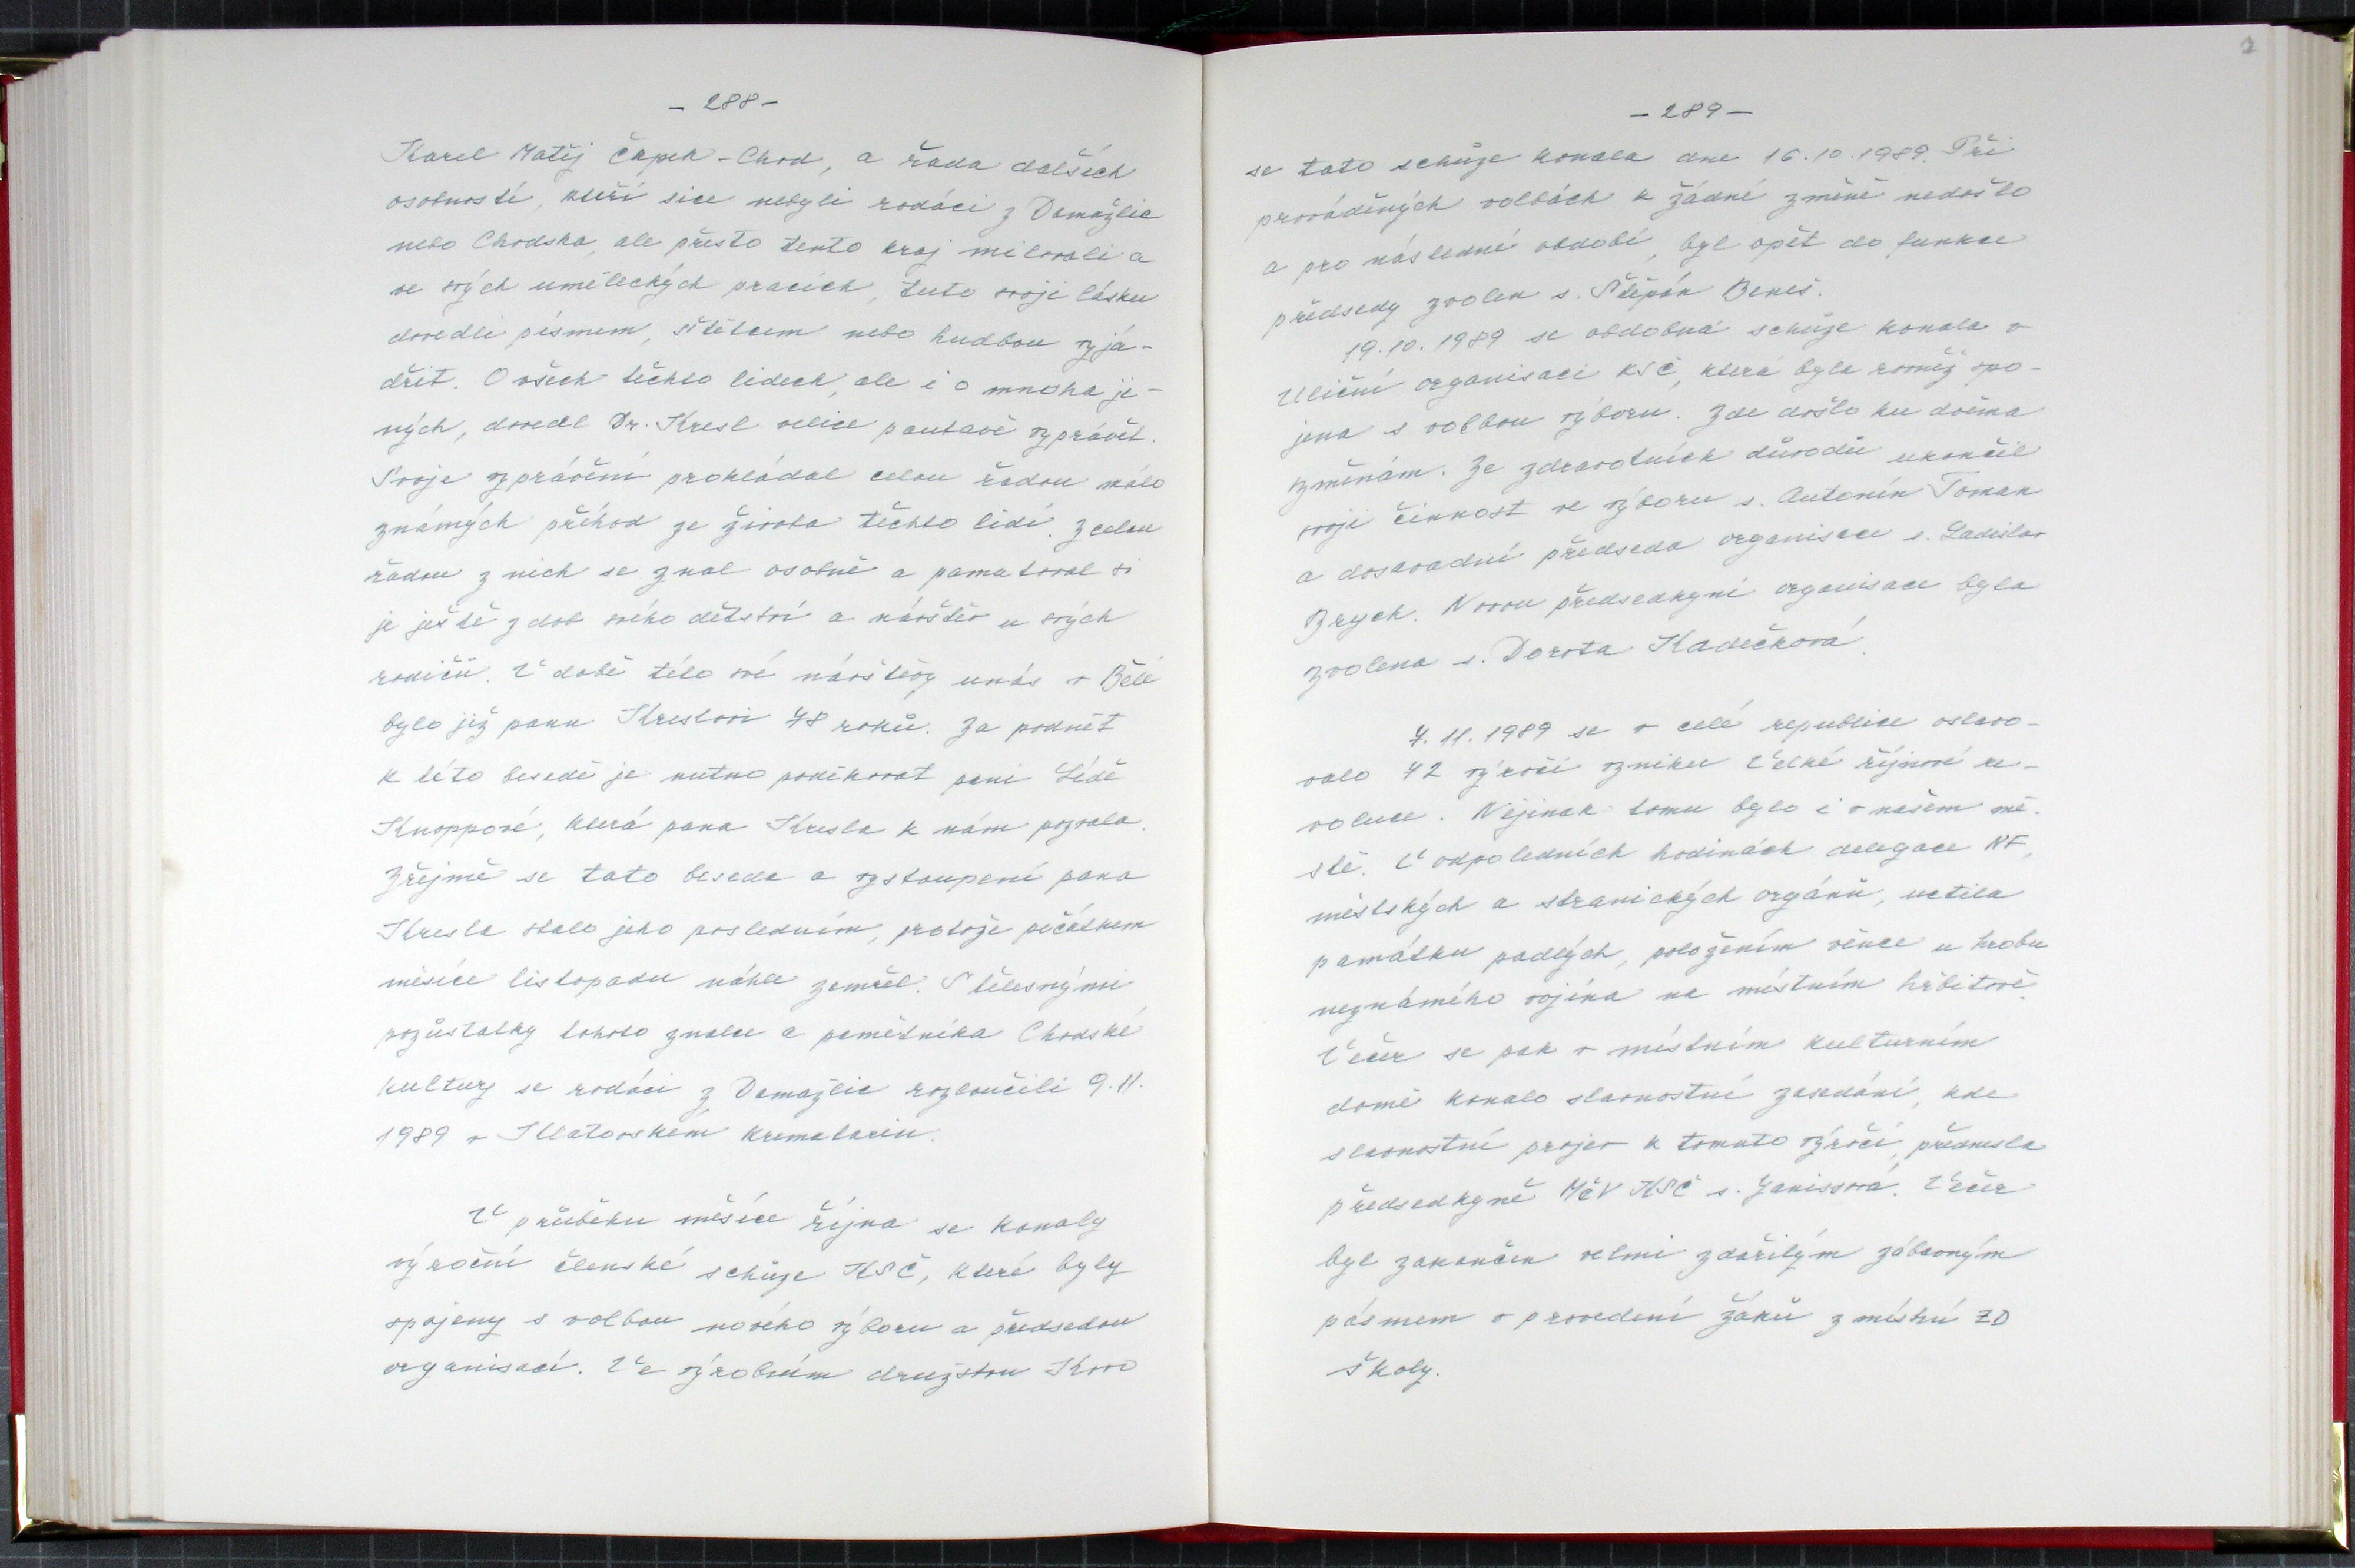 - 288 -
Karel Matěj Čapek - Chod, a řada dalších
osobností, kteří sice nebyli rodáci z Domažlic
nebo Chodska, ale přesto tento kraj milovali a
ve svých uměleckých pracích, tuto svoji lásku
dovedli písmem, štětcem nebo hudbou vyjá-
dřit. O všech těchto lidech, ale i o mnoha ji-
ných, dovedl Dr. Kresl velice poutavě vyprávět.
Svoje vyprávění prokládal celou řadou málo
známých příhod ze života těchto lidí. Z celou
řadou z nich se znal osobně a pamatoval si
je ještě z dob svého dětství a návštěv u svých
rodičů. V době této své návštěvy u nás v Bělé
bylo již panu Kreslovi 78 roků. Za podnět
k této besedě je nutno poděkovat paní Lídě
Knoppové, která pana Kresla k nám pozvala.
Zřejmě se tato beseda a vystoupení pana
Kresla stalo jeho posledním, protože počátkem
měsíce listopadu náhle zemřel. S tělesnými
pozůstatky tohoto znalce a pamětníka Chodské
kultury se rodáci z Domažlic rozloučili 9.11.
1989 v Klatovském krematoriu.
V průběhu měsíce října se konaly
výroční členské schůze KSČ, které byly
spojeny s volbou nového výboru a předsedou
organisací. Ve výrobním družstvu Kovo
- 289 -
se tato schůze konala dne 16.10.1989. Při
prováděných volbách k žádné změně nedošlo
a pro následné období, byl opět do funkce
předsedy zvolen s. Štěpán Beneš.
19.10.1989 se obdobná schůze konala v
Uliční organisaci KSČ, která byla rovněž spo-
jena s volbou výboru. Zde došlo ku dvěma
změnám. Ze zdravotních důvodů ukončil
svoji činnost ve výboru s. Antonín Toman
a dosavadní předseda organisace s. Ladislav
Brych. Novou předsedkyní organisace byla
zvolena s. Dorota Kadečková.
7.11.1989 se v celé republice oslavo-
valo 72 výročí vzniku Velké říjnové re-
voluce. Nejinak tomu bylo i v našem mě-
stě. V odpoledních hodinách delegace NF,
městských a stranických orgánů, uctila
památku padlých, položením věnce u hrobu
neznámého vojína na místním hřbitově.
Večer se pak v místním kulturním
domě konalo slavnostní zasedání, kde
slavnostní projev k tomuto výročí, přednesla
předsedkyně MěV KSČ s. Janissová. Večer
byl zakončen velmi zdařilým zábavným
pásmem v provedení žáků z místní ZD
školy.